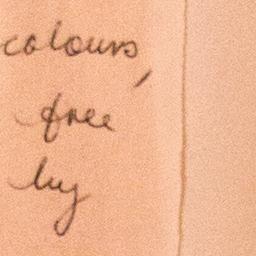 colours,
free
by